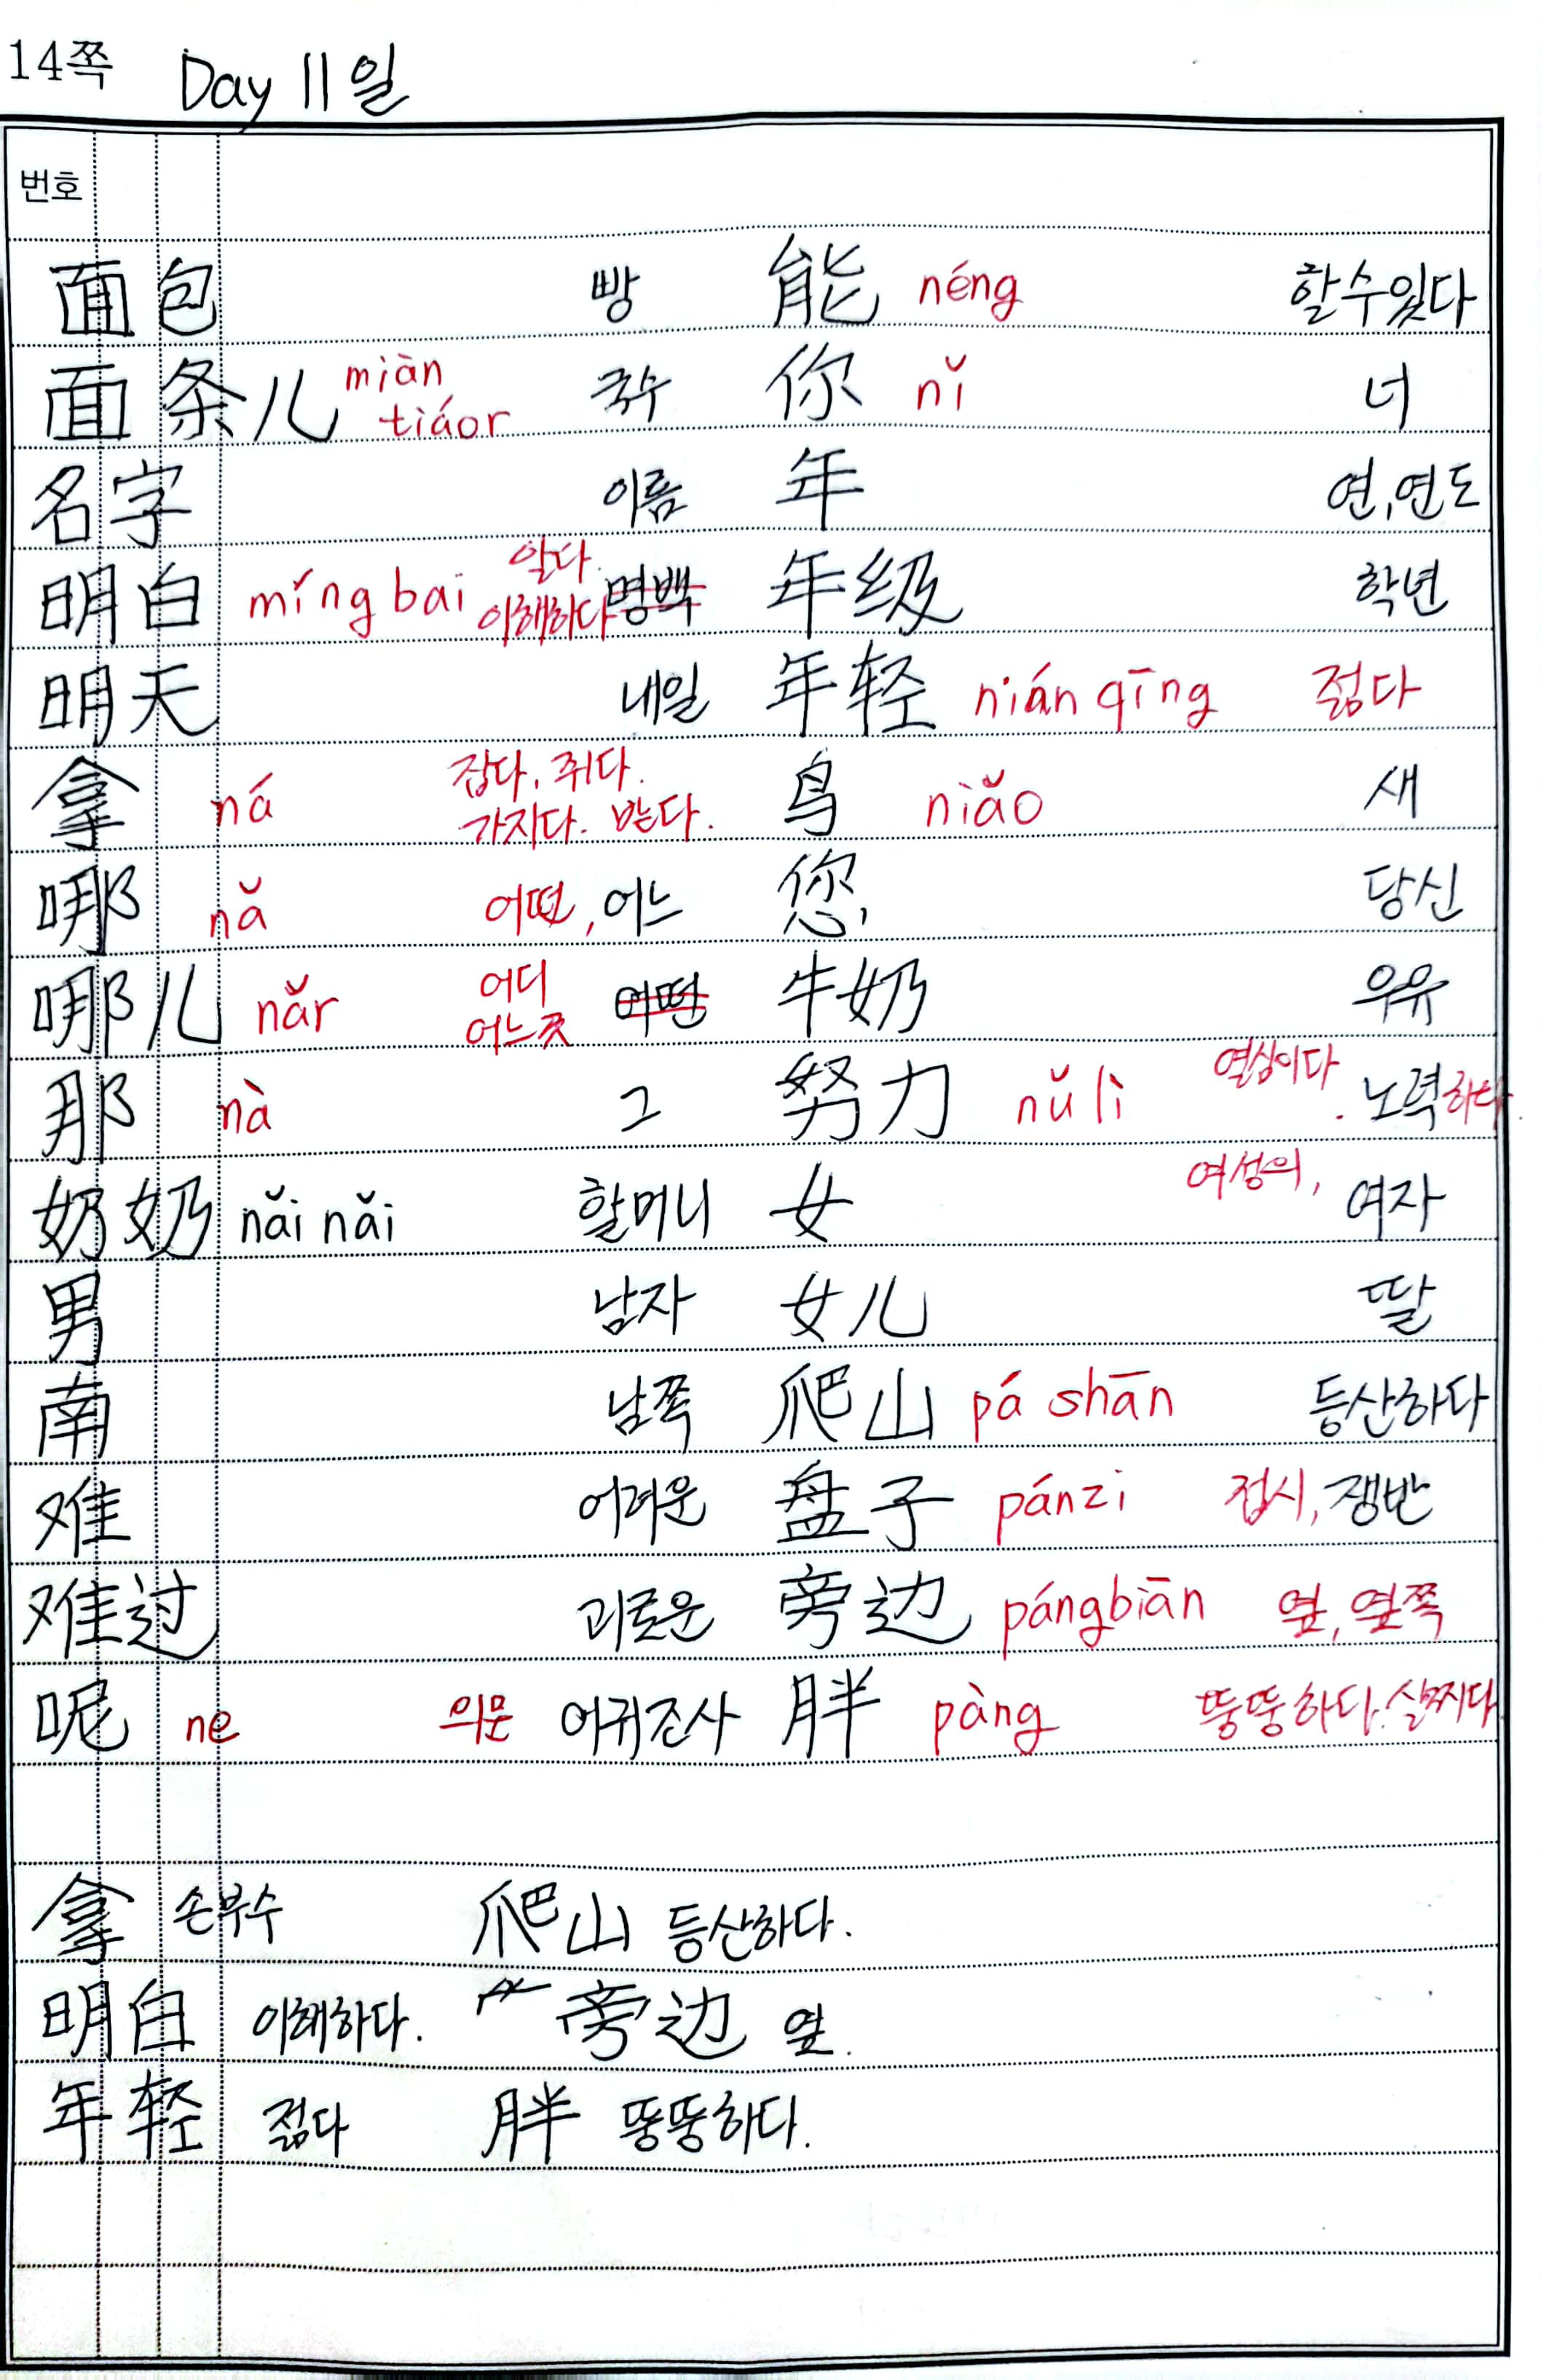 14쪽 Day 11일
번호
面包 빵 能 néng 할수있다
面条儿 miàn tiáor 국수 你 nǐ 너
名字 이름 年 연,연도
明白 míng bai 알다. 이해하다 명백 年级 학년
明天 내일 年轻 nián qīng 젊다
拿 ná 잡다, 쥐다. 가지다. 받다. 鸟 niǎo 새
哪 nǎ 어떤, 어느 您 당신
哪儿 nǎr 어디 어느곳 어떤 牛奶 우유
那 nà 그 努力 nǔ lì 열심이다. 노력하다.
奶奶 nǎi nǎi 할머니 女 여성의, 여자
男 남자 女儿 딸
南 남쪽 爬山 pá shān 등산하다
难 어려운 盘子 pánzi 접시, 쟁반
难过 괴로운 旁边 pángbiān 옆, 옆쪽
呢 ne 의문 어귀조사 胖 pàng 뚱뚱하다. 살찌다
拿 손부수 爬山 등산하다.
明白 이해하다. 旁边 옆.
年轻 젊다 胖 뚱뚱하다.